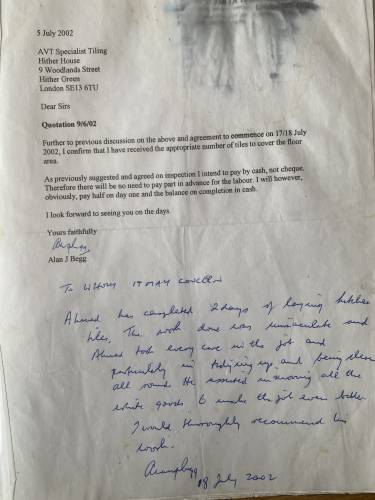 5 July 2002
AVT Specialist Tiling
Hither House
9 Woodlands Street
Hither Green
London SE13 6TU
Dear Sirs
Quotation 9/6/02
Further to previous discussion on the above and agreement to commence on 17/18 July
2002, I confirm that I have received the appropriate number of tiles to cover the floor
area.
As previously suggested and agreed on inspection I intend to pay by cash, not cheque.
Therefore there will be no need to pay part in advance for the labour. I will however,
obviously, pay half on day one and the balance on completion in cash.
I look forward to seeing you on the days.
Yours faithfully
Alan J Begg
To WHOM IT MAY CONCERN
Ahmed has completed 2 days of laying kitchen
tiles. The work done was immaculate and
Ahmed took every care in the job and
particularly in tidying up and being clean
all round. He assisted in moving all the
white goods to make the job even better
I would thoroughly recommend his
work.
18 July 2002